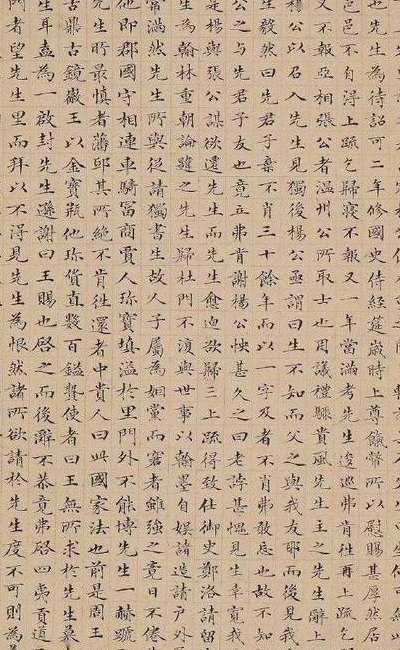 也先生為待詔可二年修國史侍經筵歲時上尊餼幣所以慰賜甚厚然居
邑邑不自得上疏乞歸寢不報又一年當滿考先生逡巡弗肯往再上疏乞
又不報亞相張公者溫州公所取士也用議禮驟貴風先生主之先生辭上
楊公以召入先生見獨後楊公亟謂曰生不知而父之與我友耶而後見我
生毅然曰先君子棄不肖三十餘年而以一字及者不肖弗敢忘也故不知
公之與先君子友也竟立弗肯謝楊公悵久之曰老誖甚愧見生幸寬我
是楊與張公謀欲遷先生而先生愈迫欲歸三上疏得致仕御史鄭洛請留
生為翰林重朝論韙之先生歸杜門不復與世事以翰墨自娛諸造請戶外
常滿然先生所與從請獨書生故人子屬為姻黨而窘者雖強之竟日不倦
他即郡國守相連車騎富商賈人珍寶填溢於里門外不能博先生一赫蹏
先生所最慎者藩邸其所絕不肯往還者中貴人曰此國家法也前是周王
古鼎古鏡徽王以金寶瓶他珍貨直數百鎰贄使者曰王無所求於先生慕
生耳盍為一啟封先生遜謝曰王賜也啟之而後辭不恭竟弗啟四夷貢道
門者望先生里而拜以不得見先生為恨然諸所欲請於先生度不可則為